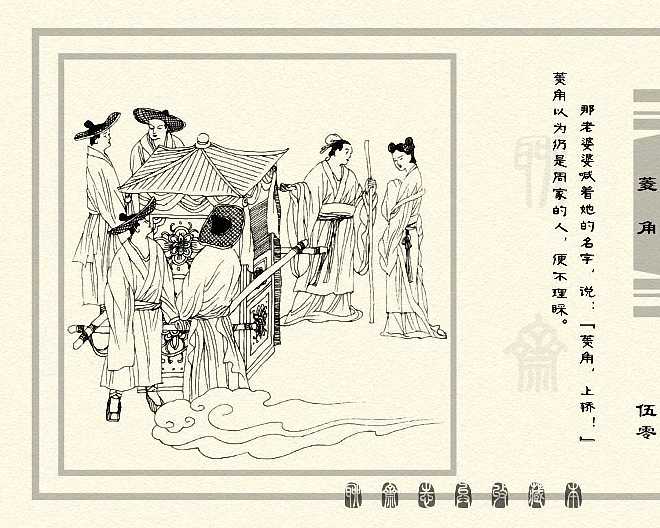 那老婆婆喊着她的名字，说：「菱角，上轿！」
菱角以为仍是周家的人，便不理睬。
菱角
伍零
聊斋志异收藏本